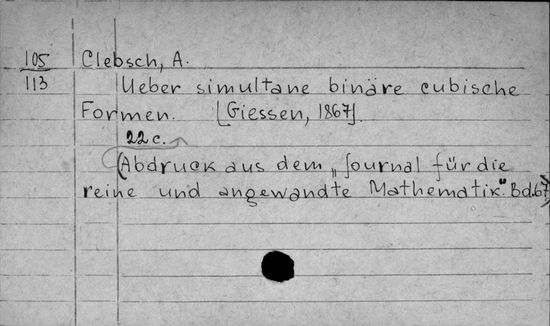 105
113
Clebsch, A.
Ueber simultane binäre cubische
Formen. [Giessen, 1867].
22 c.
(Abdruck aus dem „Journal für die
reine und angewandte Mathematik". Bd.67)